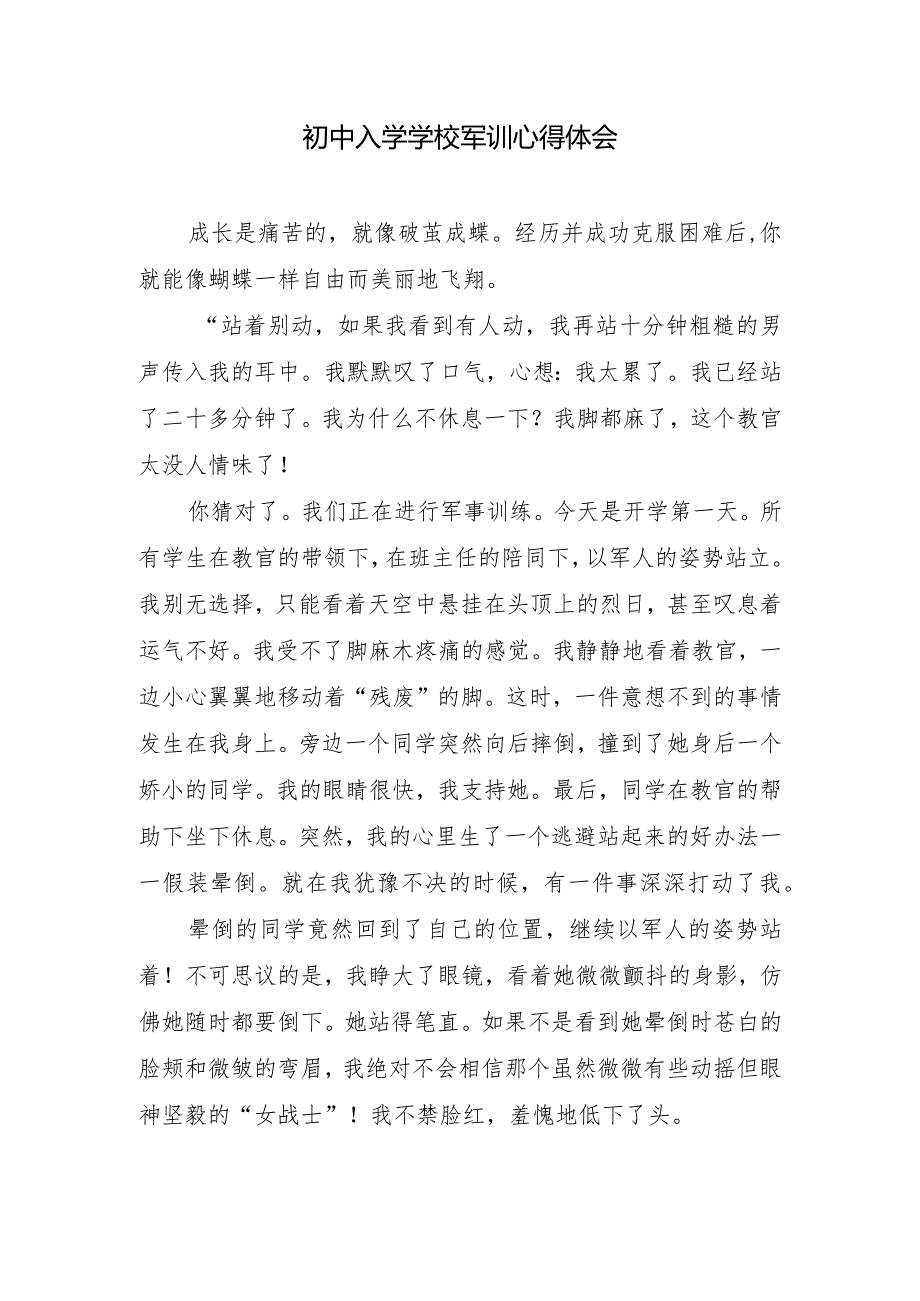 初中入学学校军训心得体会
成长是痛苦的，就像破茧成蝶。经历并成功克服困难后,你
就能像蝴蝶一样自由而美丽地飞翔。
“站着别动，如果我看到有人动，我再站十分钟粗糙的男
声传入我的耳中。我默默叹了口气，心想：我太累了。我已经站
了二十多分钟了。我为什么不休息一下？我脚都麻了，这个教官
太没人情味了！
你猜对了。我们正在进行军事训练。今天是开学第一天。所
有学生在教官的带领下，在班主任的陪同下，以军人的姿势站立。
我别无选择，只能看着天空中悬挂在头顶上的烈日，甚至叹息着
运气不好。我受不了脚麻木疼痛的感觉。我静静地看着教官，一
边小心翼翼地移动着“残废”的脚。这时，一件意想不到的事情
发生在我身上。旁边一个同学突然向后摔倒，撞到了她身后一个
娇小的同学。我的眼睛很快，我支持她。最后，同学在教官的帮
助下坐下休息。突然，我的心里生了一个逃避站起来的好办法一
一假装晕倒。就在我犹豫不决的时候，有一件事深深打动了我。
晕倒的同学竟然回到了自己的位置，继续以军人的姿势站
着！不可思议的是，我睁大了眼镜，看着她微微颤抖的身影，仿
佛她随时都要倒下。她站得笔直。如果不是看到她晕倒时苍白的
脸颊和微皱的弯眉，我绝对不会相信那个虽然微微有些动摇但眼
神坚毅的“女战士”！我不禁脸红，羞愧地低下了头。